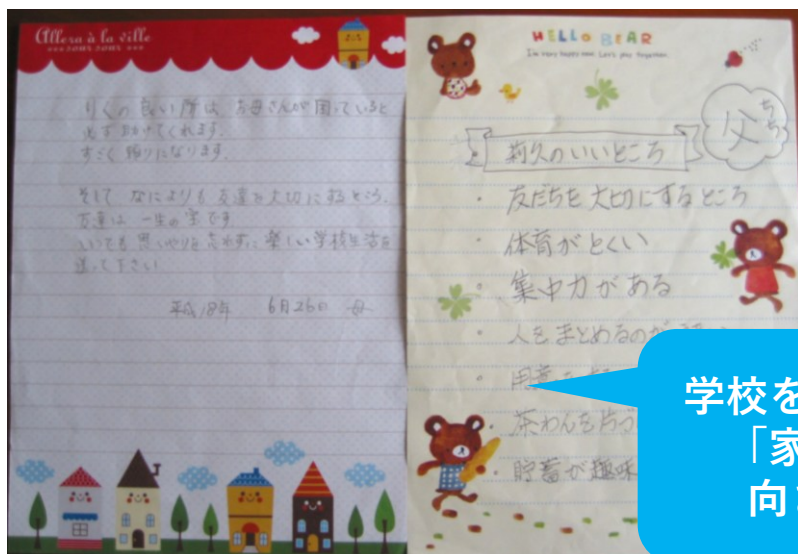 Allera à la ville
りくの良い所は お母さんが困っていると
必ず助けてくれます。
すごく頼りになります。
そして なによりも 友達を大切にするところ。
友達は 一生の宝です
いつでも 思いやりを忘れずに 楽しい学校生活を
送って下さい
平成18年 6月26日 母
HELLO BEAR
I'm very happy now. Let's play together.
父 ちち
莉久のいいところ
・ 友だちを大切にするところ
・ 体育がとくい
・ 集中力がある
・ 人をまとめるのが
・ 用意
・ 茶わんを片づ
・ 貯蓄が趣味
学校を
「家
向